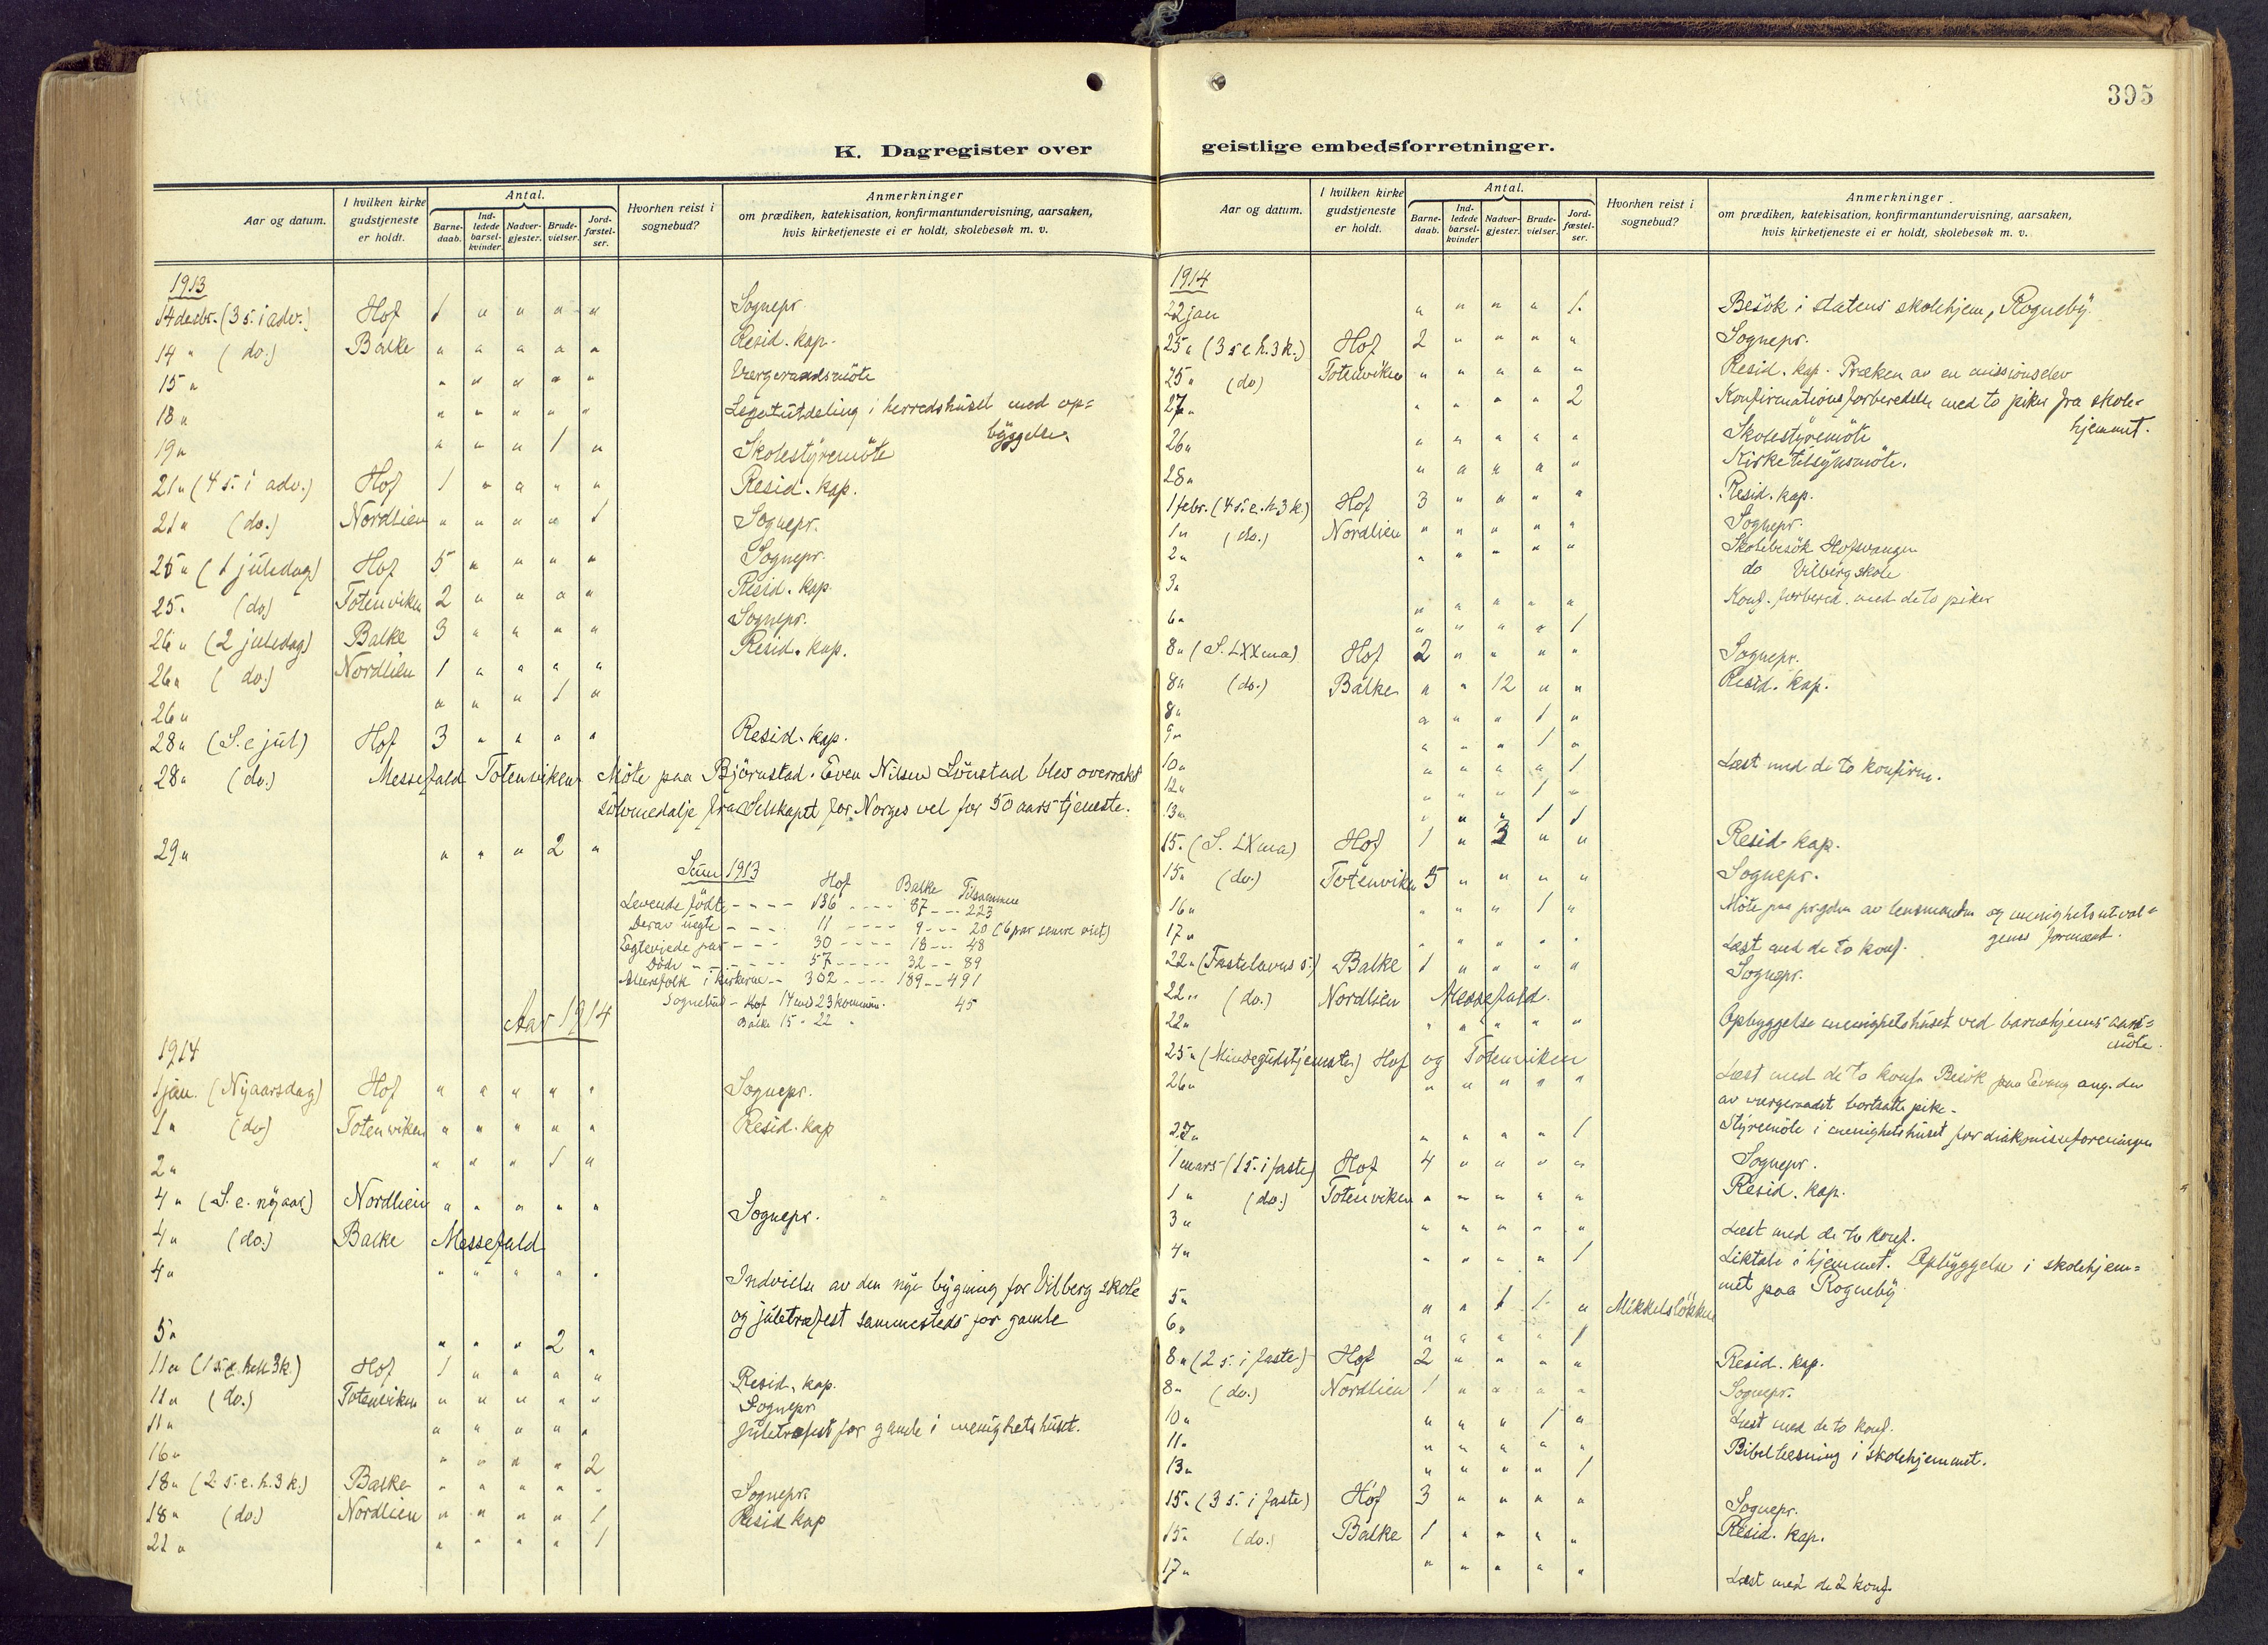 395
K. Dagregister over
geistlige embedsforretninger.
Aar og datum.
I hvilken kirke gudstjeneste er holdt.
Antal.
Barne-daab.
Ind-ledede barsel-kvinder.
Nadver-gjester.
Brude-vielser.
Jord-fæstel-ser.
Hvorhen reist i sognebud?
Anmerkninger
om prædiken, katekisation, konfirmantundervisning, aarsaken,
hvis kirketjeneste ei er holdt, skolebesøk m. v.
1913
14 decbr. (3 s. i adv.) Hof 1 " " " " Sognepr.
14 " (do.) Balke " " " " " Resid. kap.
15 " " " " " " Vergeraadsmöte
18 " " " " " " Legatutdeling i herredshuset med op=
byggelse.
19 " " " " 1 " Skolestyremöte
21 " (4 s. i adv.) Hof 1 " " " " Resid. kap.
21 " (do.) Nordlien " " " " 1 Sognepr.
25 " (1 juledag) Hof 5 " " " " Sognepr.
25 " (do) Totenviken 2 " " " " Resid. kap.
26 " (2 juledag) Balke 3 " " " " Sognepr.
26 " (do.) Nordlien 1 " " " " Resid. kap.
26 " " " " 1 "
28 " (S. e jul) Hof 3 " " " " Resid. kap.
28 " (do.) Messefald Totenviken Möte paa Björnstad. Even Nilsen Lönstad blev overrakt
sölvmedalje fra Selskapet for Norges vel for 50 aars tjeneste.
29 " " " " 2 "
Sum 1913 Hof Balke Tilsammen
Levende födte - - - - 136 - - - - 87 - - - 223
Derav uegte - - - - 11 - - - - 9 - - - 20 (6 par senere viet)
Egteviede par - - - 30 - - - - 18 - - - 48
Döde - - - - - - - 57 - - - - - 32 - - 89
Altersfolk i kirkerne - - 302 - - - - 189 - - 491
Sognebud - Hof 14 med 23 kommun. 45
Balke 15 " 22 "
Aar 1914
1914
1 jan. (Nyaarsdag) Hof " " " " " Sognepr.
1 " (do) Totenviken " " " " " Resid. kap
2 " " " " 1 "
4 " (S. e. nyaar) Nordlien " " " " " Sognepr.
4 " (do.) Balke Messefald
4 " " " " " " Indvielse av den nye bygning for Vilberg skole
og juletræfest sammesteds for gamle
5 " " " " 2 "
11 " (1 s. e. hell. 3 k.) Hof 1 " " " " Resid. kap.
11 " (do.) Totenviken " " " " " Sognepr
11 " " " " " " Juletræfest for gamle i menighetshuset.
16 " " " " " 2
18 " (2 s. e. h. 3 k.) Balke " " " " " Sognepr.
18 " (do.) Nordlien " " " " 1 Resid kap
21 " " " " " 1
Aar og datum.
I hvilken kirke gudstjeneste er holdt.
Antal.
Barne-daab.
Ind-ledede barsel-kvinder.
Nadver-gjester.
Brude-vielser.
Jord-fæstel-ser.
Hvorhen reist i sognebud?
Anmerkninger
om prædiken, katekisation, konfirmantundervisning, aarsaken,
hvis kirketjeneste ei er holdt, skolebesøk m. v.
1914
22 jan " " " " 1. Besök i statens skolehjem, Rogneby.
25 " (3 s e h. 3 k.) Hof 2 " " " " Sognepr.
25 " (do) Totenviken " " " " " Resid. kap. Præken av en missionselev
27 " " " " " 2 Konfirmationsforberedelse med to piker fra skole=
hjemmet.
26 " " " " " " Skolestyremöte
28 " " " " " " Kirketilsynsmöte.
1 febr. (4 s. e. h. 3 k) Hof 3 " " " " Resid. kap.
1 " (do.) Nordlien " " " " " Sognepr.
2 " " " " " " Skolebesök Hofsvangen
do Vilberg skole
3 " " " " " " Konf. forbered. med de to piker
6 " " " " " 1
8 " (S. LXXma) Hof 2 " " " " Sognepr.
8 " (do.) Balke " " 12 " " Resid. kap.
8 " " " " 1 "
9 " " " " 1 "
10 " " " " " 1 Læst med de to konfirm.
12 " " " " 1 "
13 " " " " 1 1
15. (S. LXma) Hof 1 " 3 " " Resid. kap.
15 " (do.) Totenviken 5 " " " " Sognepr.
16 " " " " 1 " Möte paa av lensmanden og menighetsutval=
genes formænd.
17 " " " " " " Læst med de to konf.
22 " (Fastelavns s.) Balke 1 " " " " Sognepr.
22 " (do.) Nordlien Messefald.
22 " " " " " " Opbyggelse menighetshuset ved barnehjems aars=
möte.
25 " (Mindegudstjenester) Hof og Totenviken
26 " " " " " " Læst med de to konf. Besök paa Evang ang. den
av vergeraadet bortsatte pike.
27 " " " " " 1 Styremöte i menighetshuset for diakonisseforeningen
1 mars (1 s. i faste) Hof 4 " " " " Sognepr.
1 " (do.) Totenviken " " " " " Resid. kap.
3 " " " " " " Læst med de to konf.
4 " " " " " 1 Liktale i hjemmet. Opbyggelse i skolehjem=
met paa Rogneby
5 " " " 1 1 " Mikkelslökken
6 " " " " " 1
8 " (2 s. i faste) Hof 2 " " " " Resid. kap.
8 " (do.) Nordlien 1 " " " " Sognepr.
10 " " " " 1 " Læst med de to konf.
11 " " " " " " Bibellæsning i skolehjemmet.
13 " " " " " 1
15 " (3 s. i faste) Hof 3 " " " " Sognepr.
15 " (do.) Balke 1 " " " " Resid. kap.
17 " " " " " " Læst med de 2 konf.